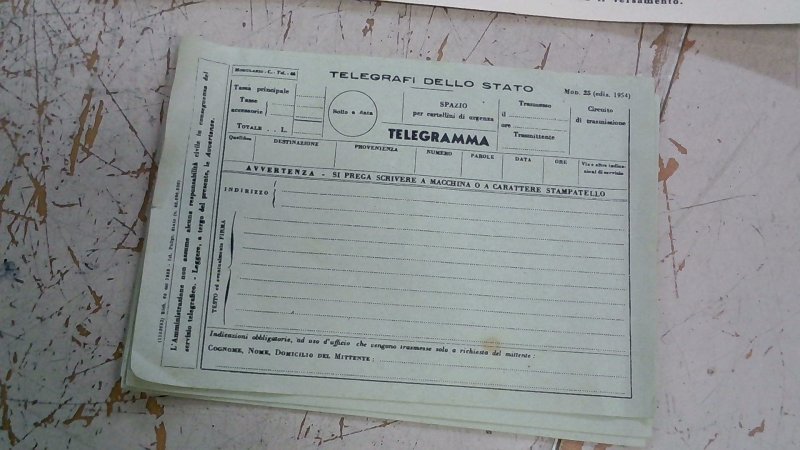 Versamento.
MODULARIO - C. - Tel. - 46
TELEGRAFI DELLO STATO
MOD. 25 (ediz. 1954)
Tassa principale
Tasse
accessorie
TOTALE . . . L.
Bollo a data
SPAZIO
per cartellini di urgenza
TELEGRAMMA
Trasmesso
il
ore
Trasmittente
Circuito
di trasmissione
Qualifica
DESTINAZIONE
PROVENIENZA
NUMERO
PAROLE
DATA
ORE
Via e altre indica-
zioni di servizio
AVVERTENZA - SI PREGA SCRIVERE A MACCHINA O A CARATTERE STAMPATELLO
INDIRIZZO
TESTO ed eventualmente FIRMA
Indicazioni obbligatorie, ad uso d'ufficio che vengono trasmesse solo a richiesta del mittente :
COGNOME, NOME, DOMICILIO DEL MITTENTE :
L'Amministrazione non assume alcuna responsabilità civile in conseguenza del
servizio telegrafico. - Leggere, a tergo del presente, le Avvertenze.